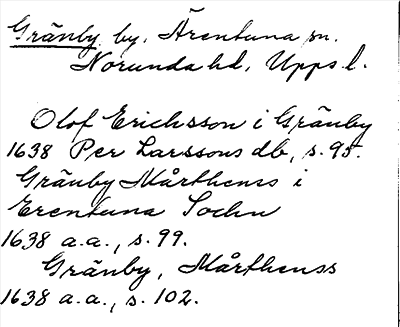 Gränby by, Ärentuna sn.
Norunda hd, Upps l.
Olof Erichsson i Gränby
1638 Per Larssons db, s. 95.
Gränby Mårthens i
Erentuna Sochn
1638 a.a., s. 99.
Gränby, Mårthenss
1638 a.a., s. 102.